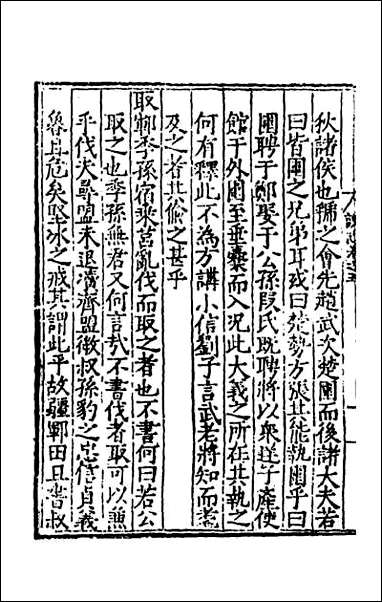 狄諸侯也虢之會先趙武次楚圍而後諸大夫若
曰皆圍之兄弟耳或曰楚勢方張其能執圍乎曰
圍聘于鄭娶于公孫段氏既聘將以衆逆子產使
館于外圍至垂櫜而入况此大義之所在其執之
何有釋此不為方講小信劉子言武老將知而耄
及之者其偷之甚乎
取鄆季孫宿乘莒亂伐而取之者也不書何曰若公
取之也季孫無君又何言㢤不書伐者取可以兼
乎伐夫尋盟未退瀆齊盟微叔孫豹之忠信貞義
魯且危矣堅冰之戒其謂此乎故疆鄆田且書叔